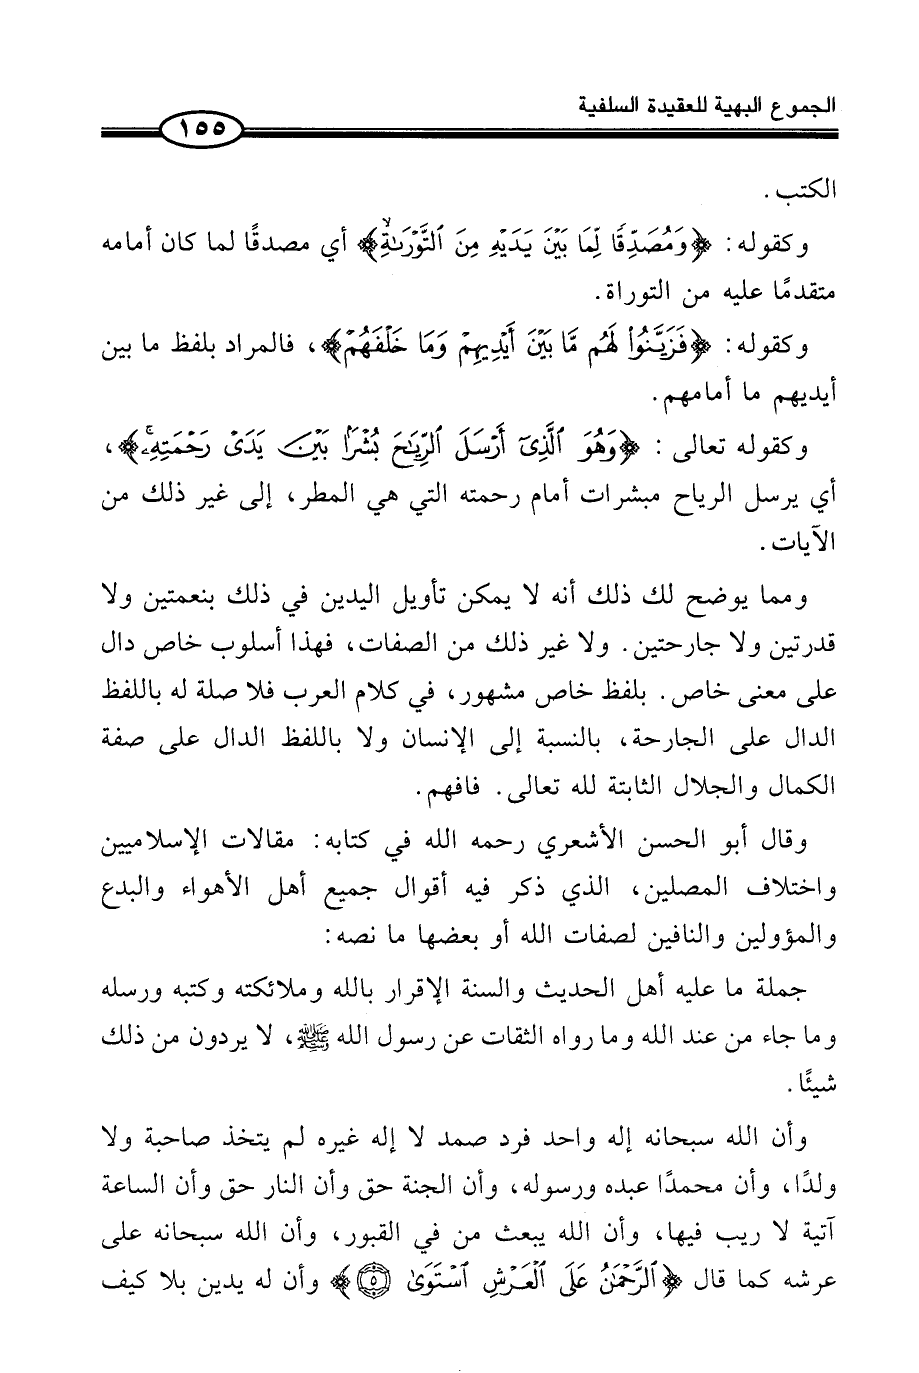 الجموع البهية للعقيدة السلفية
١٥٥
الكتب.
وكقوله: ﴿وَمُصَدِّقًا لِّمَا بَيْنَ يَدَيْهِ مِنَ ٱلتَّوْرَىٰةِۖ﴾ أي مصدقًا لما كان أمامه
متقدمًا عليه من التوراة.
وكقوله: ﴿فَزَيَّنُوا۟ لَهُم مَّا بَيْنَ أَيْدِيهِمْ وَمَا خَلْفَهُمْ﴾، فالمراد بلفظ ما بين
أيديهم ما أمامهم.
وكقوله تعالى: ﴿وَهُوَ ٱلَّذِىٓ أَرْسَلَ ٱلرِّيَٰحَ بُشْرًۢا بَيْنَ يَدَىْ رَحْمَتِهِۦۚ﴾،
أي يرسل الرياح مبشرات أمام رحمته التي هي المطر، إلى غير ذلك من
الآيات.
ومما يوضح لك ذلك أنه لا يمكن تأويل اليدين في ذلك بنعمتين ولا
قدرتين ولا جارحتين. ولا غير ذلك من الصفات، فهذا أسلوب خاص دال
على معنى خاص. بلفظ خاص مشهور، في كلام العرب فلا صلة له باللفظ
الدال على الجارحة، بالنسبة إلى الإنسان ولا باللفظ الدال على صفة
الكمال والجلال الثابتة لله تعالى. فافهم.
وقال أبو الحسن الأشعري رحمه الله في كتابه: مقالات الإسلاميين
واختلاف المصلين، الذي ذكر فيه أقوال جميع أهل الأهواء والبدع
والمؤولين والنافين لصفات الله أو بعضها ما نصه:
جملة ما عليه أهل الحديث والسنة الإقرار بالله وملائكته وكتبه ورسله
وما جاء من عند الله وما رواه الثقات عن رسول الله ﷺ، لا يردون من ذلك
شيئًا.
وأن الله سبحانه إله واحد فرد صمد لا إله غيره لم يتخذ صاحبة ولا
ولدًا، وأن محمدًا عبده ورسوله، وأن الجنة حق وأن النار حق وأن الساعة
آتية لا ريب فيها، وأن الله يبعث من في القبور، وأن الله سبحانه على
عرشه كما قال ﴿ٱلرَّحْمَٰنُ عَلَى ٱلْعَرْشِ ٱسْتَوَىٰ ٥﴾ وأن له يدين بلا كيف